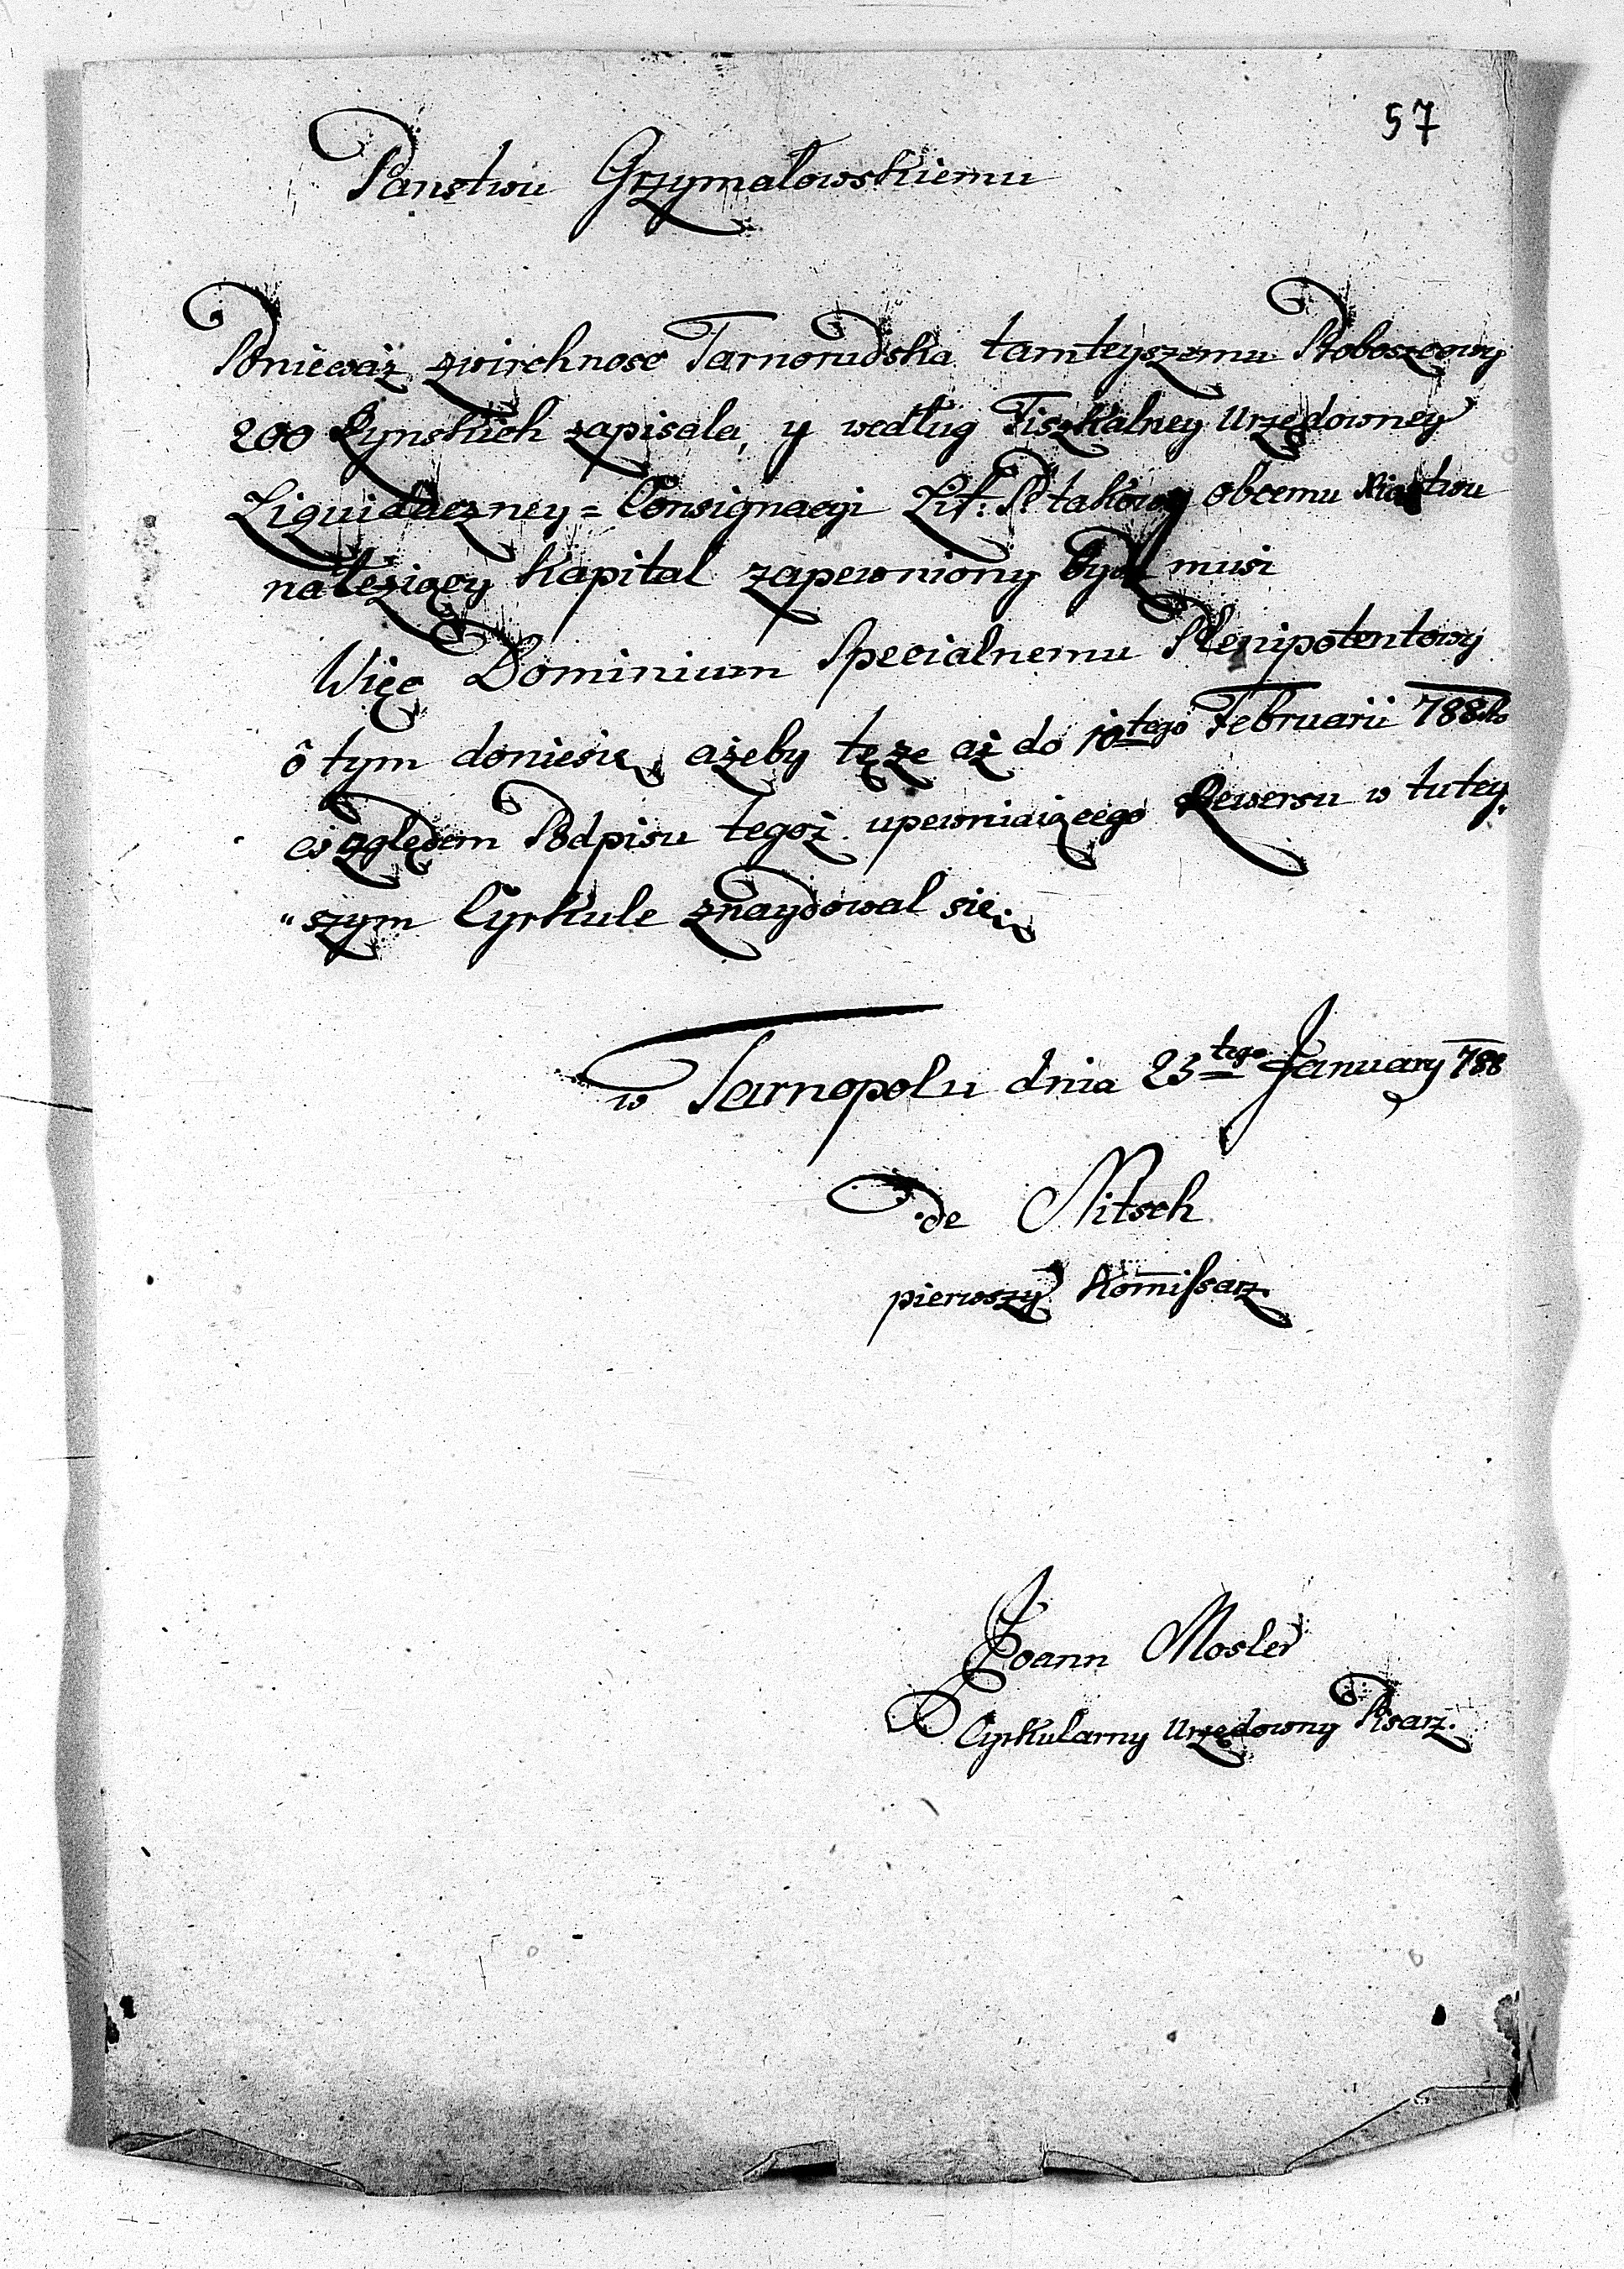 57
Panstwu Grzymalowskiemu
Poniewaz zwirchnosc Tarnorudska tamteyszemu Proboszczowy
200 Rynskich zapisala, y według Fiszkalney Urzędowney
Liquidaczney = Consignacyi Lit: P. takowy obcemu
należiący Kapital zapewniony bydz musi
Więc Dominium Specialnemu Plenipotentowy
ô tym doniesie, ażeby tęze aż do 10tego Februarii 788
względem Podpisu tegoż upewniaiącego Rewersu w tutey,
"szym Cyrkule znaydowal się.
w Tarnopolu dnia 23tego January 788
de Nitsch
pierwszy Kom̄issarz
Joann Mosler
Cyrkularny Urzędowny Pisarz.